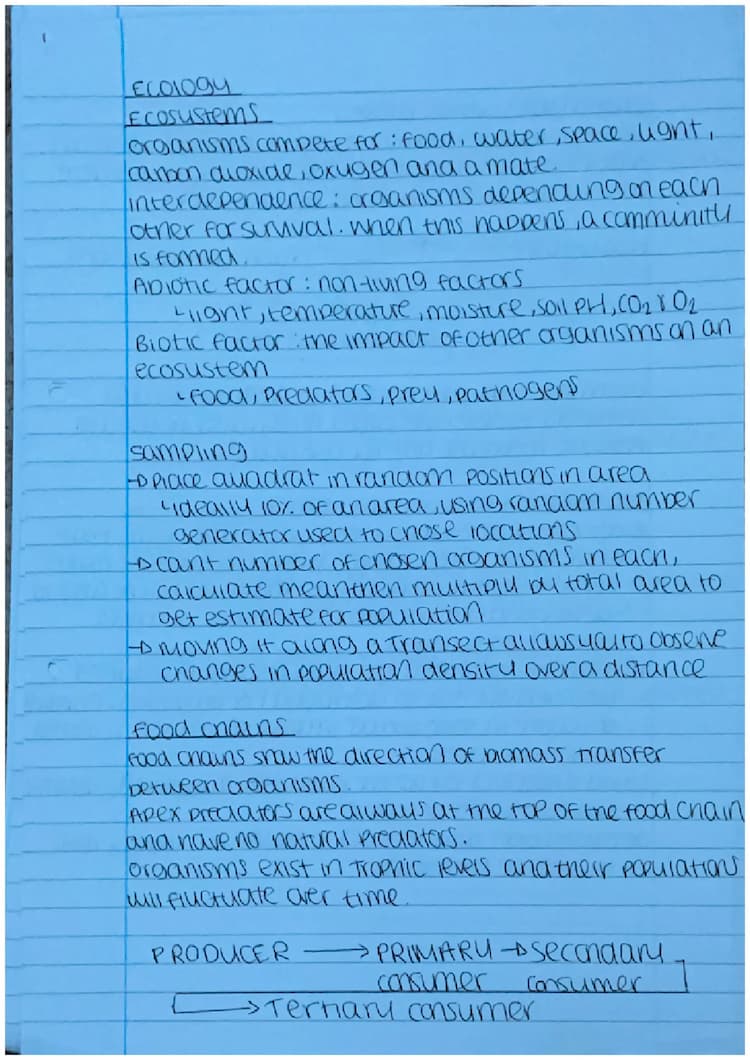 Ecology
Ecosystems
organisms compete for : food, water, space, light,
carbon dioxide, oxygen and a mate
interdependence : organisms depending on each
other for survival. when this happens, a community
is formed.
Abiotic factor : non-living factors
↳ light, temperature, moisture, soil pH, CO₂ & O₂
Biotic factor : the impact of other organisms on an
ecosystem
↳ food, predators, prey, pathogens
sampling
→ place quadrat in random positions in area
↳ ideally 10% of an area, using random number
generator used to chose locations
→ count number of chosen organisms in each,
calculate mean then multiply by total area to
get estimate for population
→ moving it along a transect allows you to observe
changes in population density over a distance
Food chains
food chains show the direction of biomass transfer
between organisms.
Apex predators are always at the top of the food chain
and have no natural predators.
organisms exist in trophic levels and their populations
will fluctuate over time.
PRODUCER → PRIMARY → secondary
consumer consumer
→ Ternary consumer